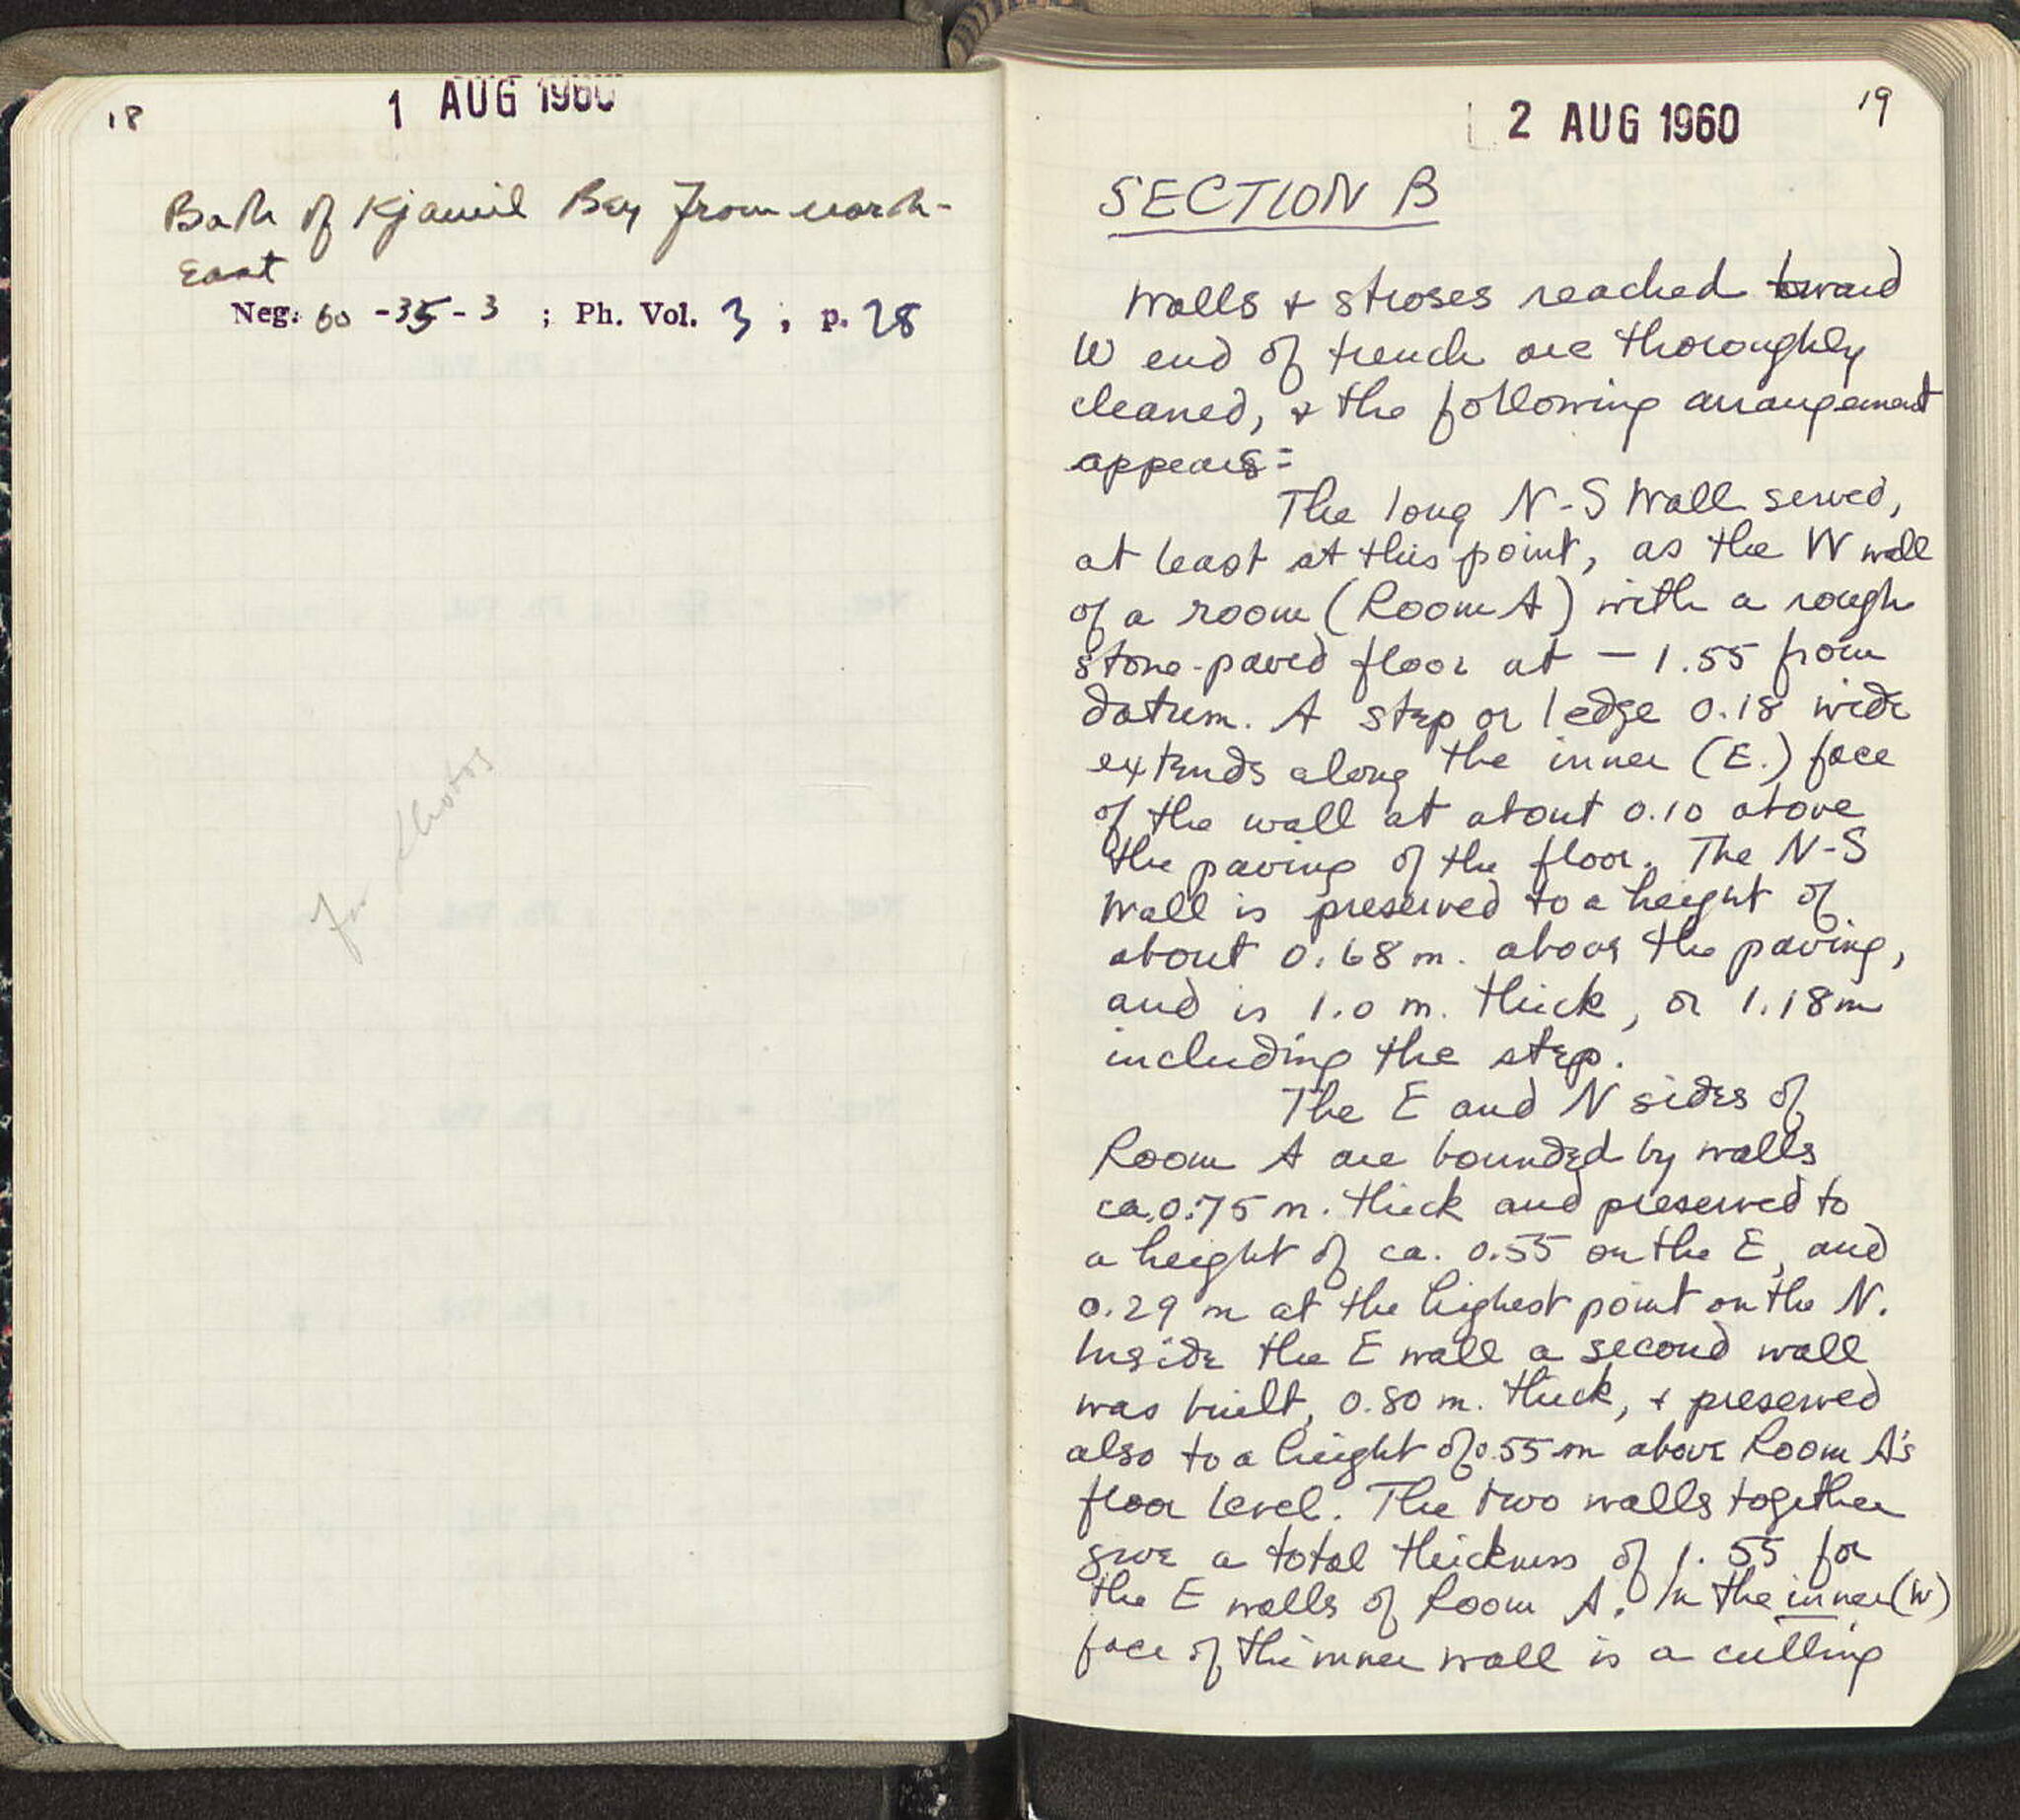 18
1 AUG 1960
Bath of Kjamil Bey from north-
East
Neg. 60 -35- 3 ; Ph. Vol. 3 ; p. 28
for photos
19
2 AUG 1960
SECTION B
Walls & stroses reached toward
W end of trench are thoroughly
cleaned, & the following arrangement
appears:
The long N-S Wall served,
at least at this point, as the W wall
of a room (Room A) with a rough
stone-paved floor at - 1.55 from
datum. A step or ledge 0.18 wide
extends along the inner (E.) face
of the wall at about 0.10 above
the paving of the floor. The N-S
Wall is preserved to a height of
about 0.68 m. above the paving,
and is 1.0 m. thick, or 1.18m
including the step.
The E and N sides of
Room A are bounded by walls
ca. 0.75 m. thick and preserved to
a height of ca. 0.55 on the E, and
0.29 m at the highest point on the N.
Inside the E wall a second wall
was built, 0.80 m. thick, & preserved
also to a height of 0.55 m above Room A's
floor level. The two walls together
give a total thickness of 1.55 for
the E walls of Room A. In the inner (W)
face of the inner wall is a cutting